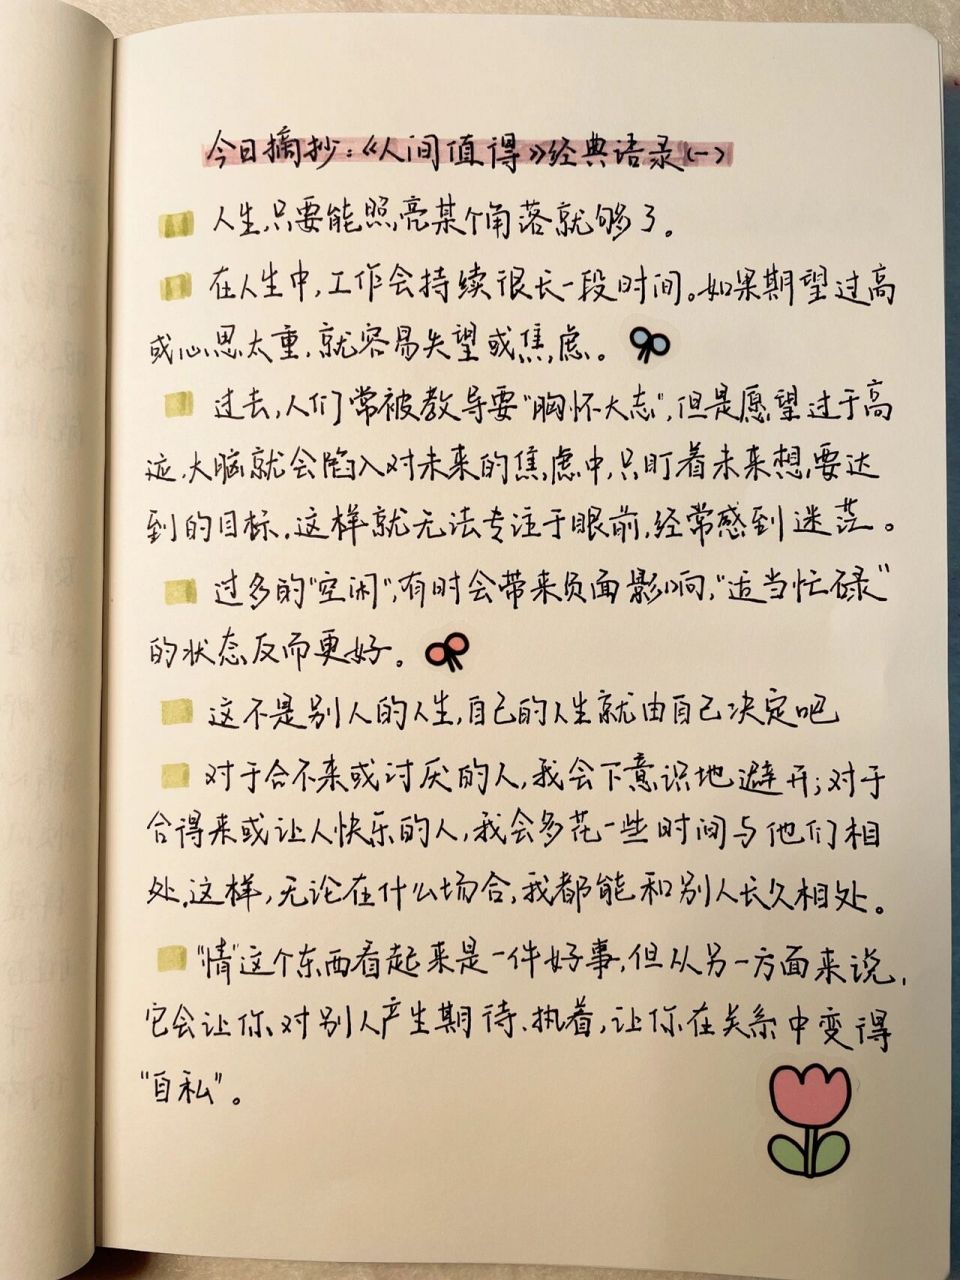 今日摘抄:《人间值得》经典语录(一)
人生,只要能照亮某个角落就够了。
在人生中,工作会持续很长一段时间。如果期望过高
或心思太重,就容易失望或焦虑。
过去,人们常被教导要"胸怀大志",但是愿望过于高
远,大脑就会陷入对未来的焦虑中,只盯着未来想要达
到的目标,这样就无法专注于眼前,经常感到迷茫。
过多的"空闲",有时会带来负面影响,"适当忙碌"
的状态反而更好。
这不是别人的人生,自己的人生就由自己决定吧
对于合不来或讨厌的人,我会下意识地避开;对于
合得来或让人快乐的人,我会多花一些时间与他们相
处,这样,无论在什么场合,我都能和别人长久相处。
"情"这个东西看起来是一件好事,但从另一方面来说,
它会让你对别人产生期待、执着,让你在关系中变得
"自私"。